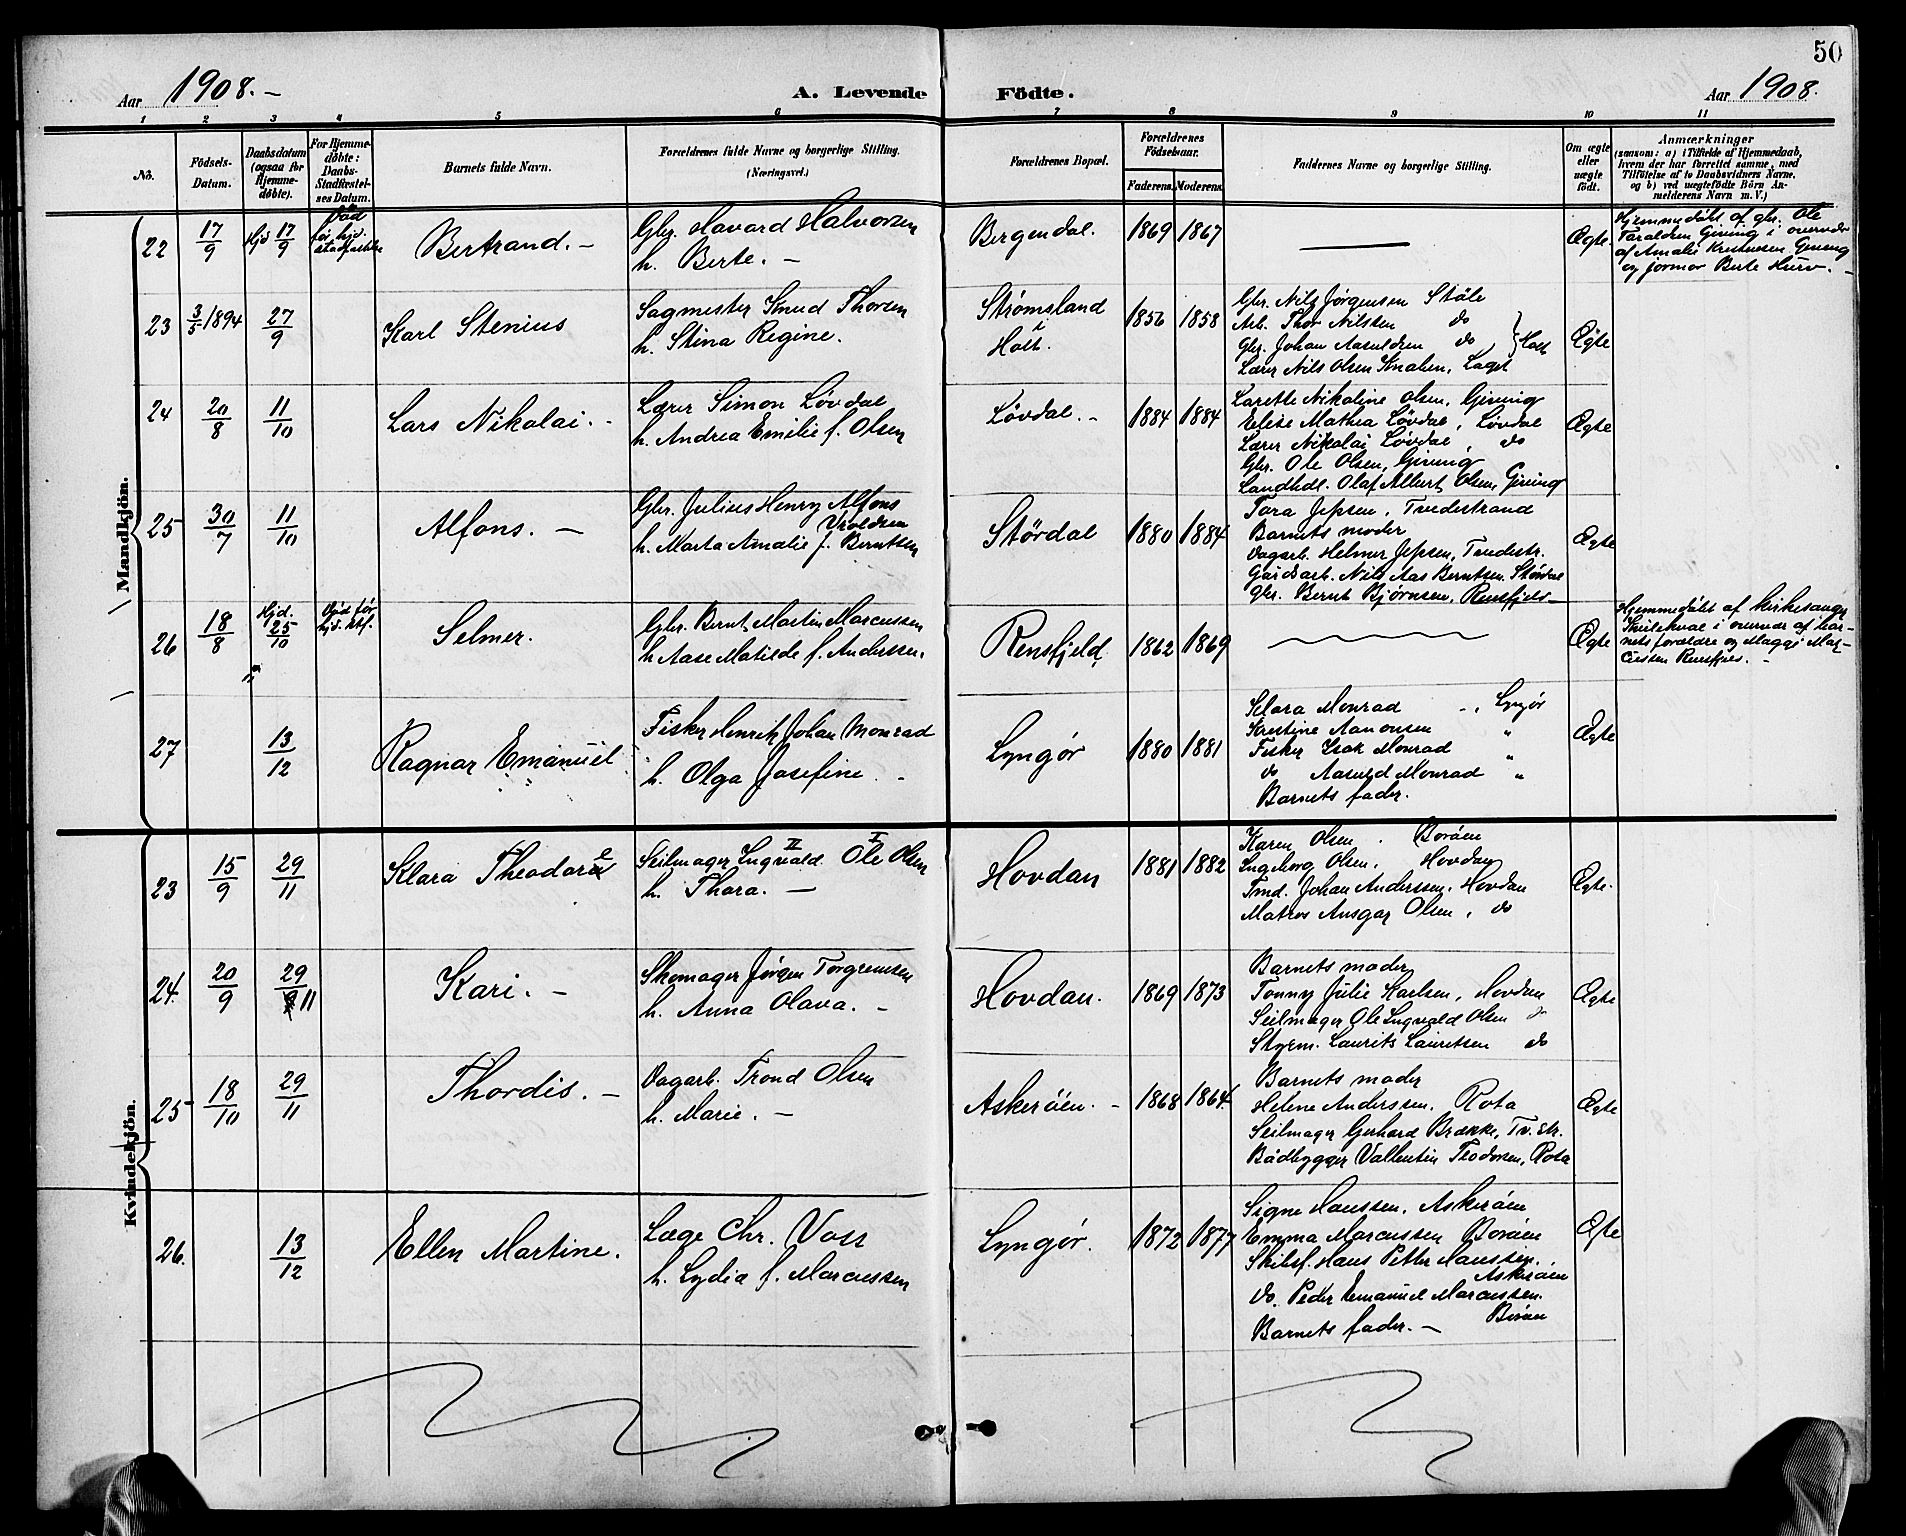 50
Aar 1908. –
A. Levende Födte.
Aar 1908.
1 2 3 4 5 6 7 8 9 10 11
No.
Födsels-Datum.
Daabsdatum (ogsaa for Hjemme-døbte).
For Hjemme-døbte: Daabs-Stadfæstel-ses Datum.
Barnets fulde Navn.
Forældrenes fulde Navne og borgerlige Stilling. (Næringsvei.)
Forældrenes Bopæl.
Forældrenes Fødselsaar.
Faderens. Moderens.
Faddernes Navne og borgerlige Stilling.
Om ægte eller uægte født.
Anmærkninger
(saasom: a) i Tilfælde af Hjemmedaab, hvem der har forrettet samme, med Tilføielse af to Daabsvidners Navne, og b) ved uægtefødte Börn An-melderens Navn m. V.)
Mandkjön.
22 17/9 Hjd 17/9 Død før hjd. stadfæstelse Bertrand. –
Gbr. Havard Halvorsen
h. Berte. –
Bergendal. 1869 1867 Ægte.
Hjemmedøbt af gbr. Ole
Taraldsen Gjeving i overvær
af Amalie Kristensen Gjeving
og jormor Berte Hurv. –
23 3/5 1894 27/9 Karl Stenius
Sagmester Knud Thorsen
h. Stina Regine.
Strømsland
i
Holt.
1856 1858
Gbr. Nils Jørgensen Støle
Arb. Thor Nilssen do
Gbr. Johan Aasuldsen do } Holt
Lærer Nils Olsen Smalen, Laget
Ægte
24 20/8 11/10 Lars Nikolai. –
Lærer Simon Løvdal
h. Andrea Emilie f. Olsen
Løvdal. – 1884 1884
Larette Nikoline Olsen, Gjeving
Elise Mathea Løvdal, Løvdal
Lærer Nikolai Løvdal, do
Gbr. Ole Olsen, Gjeving
Landhdl. Olaf Albert Olsen, Gjeving
Ægte
25 30/7 11/10 Alfons. –
Gbr. Julius Henry Alfons
Vroldsen
h. Marta Amalie f. Berntsen
Størdal 1880 1884
Tora Jepsen, Tvedestrand
Barnets moder
Dagarb. Helmer Jepsen, Tvedestr.
Gårdsarb. Nils Aas Berntsen. Størdal
Gbr. Bernt Bjørnsen, Rensfjeld
Ægte
26 18/8 Hjd. 25/10 Død før hjd. stf. Selmer.
Gbr. Bernt Martin Marcussen
h. Aase Matilde f. Anderssen.
Rensfjeld, 1862 1869 Ægte
Hjemmedøbt af kirkesanger
i overvær af bar-
nets forældre og Maggi Mar-
Rensfjeld. –
27 13/12 Ragnar Emanuel
Fisker Henrik Johan Monrad
h. Olga Josefine. –
Lyngør 1880 1881
Klara Monrad –, Lyngør
Kristine Aanonsen "
Fisker Isak Monrad "
do Aasuld Monrad "
Barnets fader.
Ægte
Kvindekjön.
23 15/9 29/11 Klara Theodore
Seilmager Ingvald II Ole I Olsen
h. Thora. –
Hovdan 1881 1882
Karen Olsen. Borøen
Ingeborg Olsen. Hovdan
Tmd. Johan Anderssen. Hovdan
Matros Ansgar Olsen, do
Ægte.
24. 20/9 29/11 Kari. –
Skomager Jørgen Torgrimsen
h. Anna Olava. –
Hovdan. 1869 1873
Barnets moder
Tonny Julie Karlsen, Hovdan
Seilmager Ole Ingvald Olsen do
Styrm. Laurits Lauritsen do
Ægte
25 18/10 29/11 Thordis. –
Dagarb. Trond Olsen
h. Marie. –
Askerøen. – 1868 1864
Barnets moder
Helene Anderssen. Rota
Seilmager Gerhard Brække, Tv.str.
Bådbygger Vallentin Teodorsen, Rota
Ægte
26. 13/12 Ellen Martine.
Læge Chr. Voss
h. Lydia f. Marcussen
Lyngør. 1872 1877
Signe Hanssen. Askerøen
Emma Marcussen Borøen
Skibsf. Hans Petter Hanssen.
Askerøen
do. Peder Emanuel Marcussen.
Borøen
Barnets fader. –
Ægte